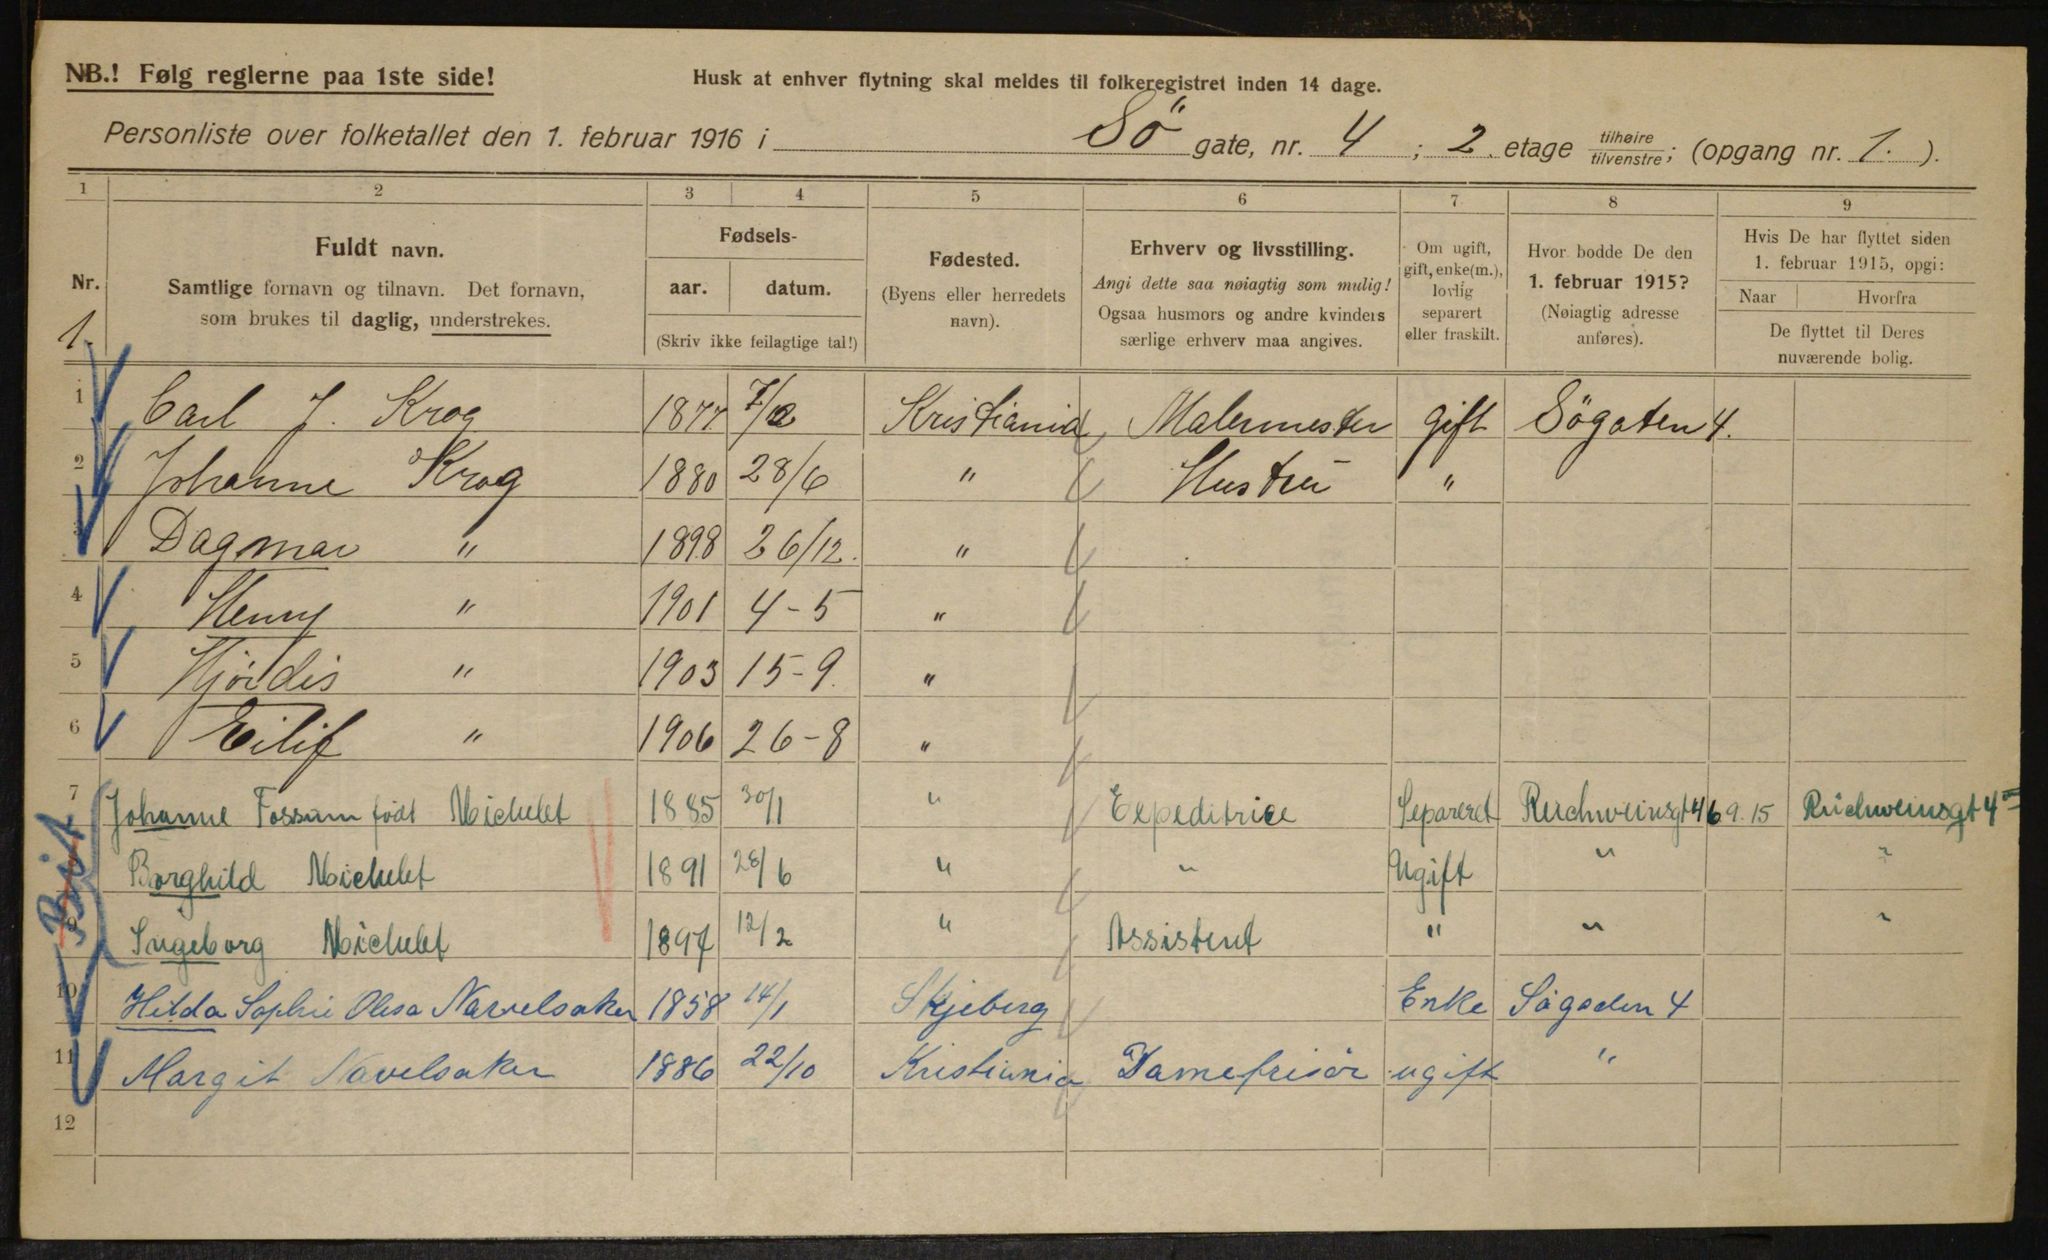 NB.! Følg reglerne paa 1ste side!
Husk at enhver flytning skal meldes til folkeregistret inden 14 dage.
Personliste over folketallet den 1. februar 1916 i Sö gate, nr. 4 ; 2. etage tilhøire / tilvenstre; (opgang nr. 1. ).
1 2 3 4 5 6 7 8 9
Nr. Fuldt navn. Samtlige fornavn og tilnavn. Det fornavn, som brukes til daglig, understrekes.
Fødsels- aar. datum. (Skriv ikke feilagtige tal!)
Fødested. (Byens eller herredets navn).
Erhverv og livsstilling. Angi dette saa nøiagtig som mulig! Ogsaa husmors og andre kvinders særlige erhverv maa angives.
Om ugift, gift, enke(m.), lovlig separert eller fraskilt.
Hvor bodde De den 1. februar 1915? (Nøiagtig adresse anføres).
Hvis De har flyttet siden 1. februar 1915, opgi: Naar Hvorfra De flyttet til Deres nuværende bolig.
1.
1 Carl J. Krog 1877 Kristiania Malermester gift Sögaten 4.
2 Johanne Krog 1880 28/6 " Hustru "
3 Dagmar " 1898 26/12. "
4 Henry " 1901 4-5 "
5 Hjördis " 1903 15-9. "
6 Eilif " 1906 26-8 "
7 Johanne Fossum født Michelet 1885 30/1 " Expeditrice Separeret Reichweinsgt 4 6 9.15 Reichweinsgt 4
Borghild Michelet 1891 28/6 " " Ugift " "
9 Ingeborg Michelet 1897 12/2 " Assistent " " "
10 Hilda Sophie Olesa Navelsaker 1858 14/1 Skjeberg Enke Sögaden 4
11 Margit Navelsaker 1886 22/10 Kristiania Damefrisør ugift "
12